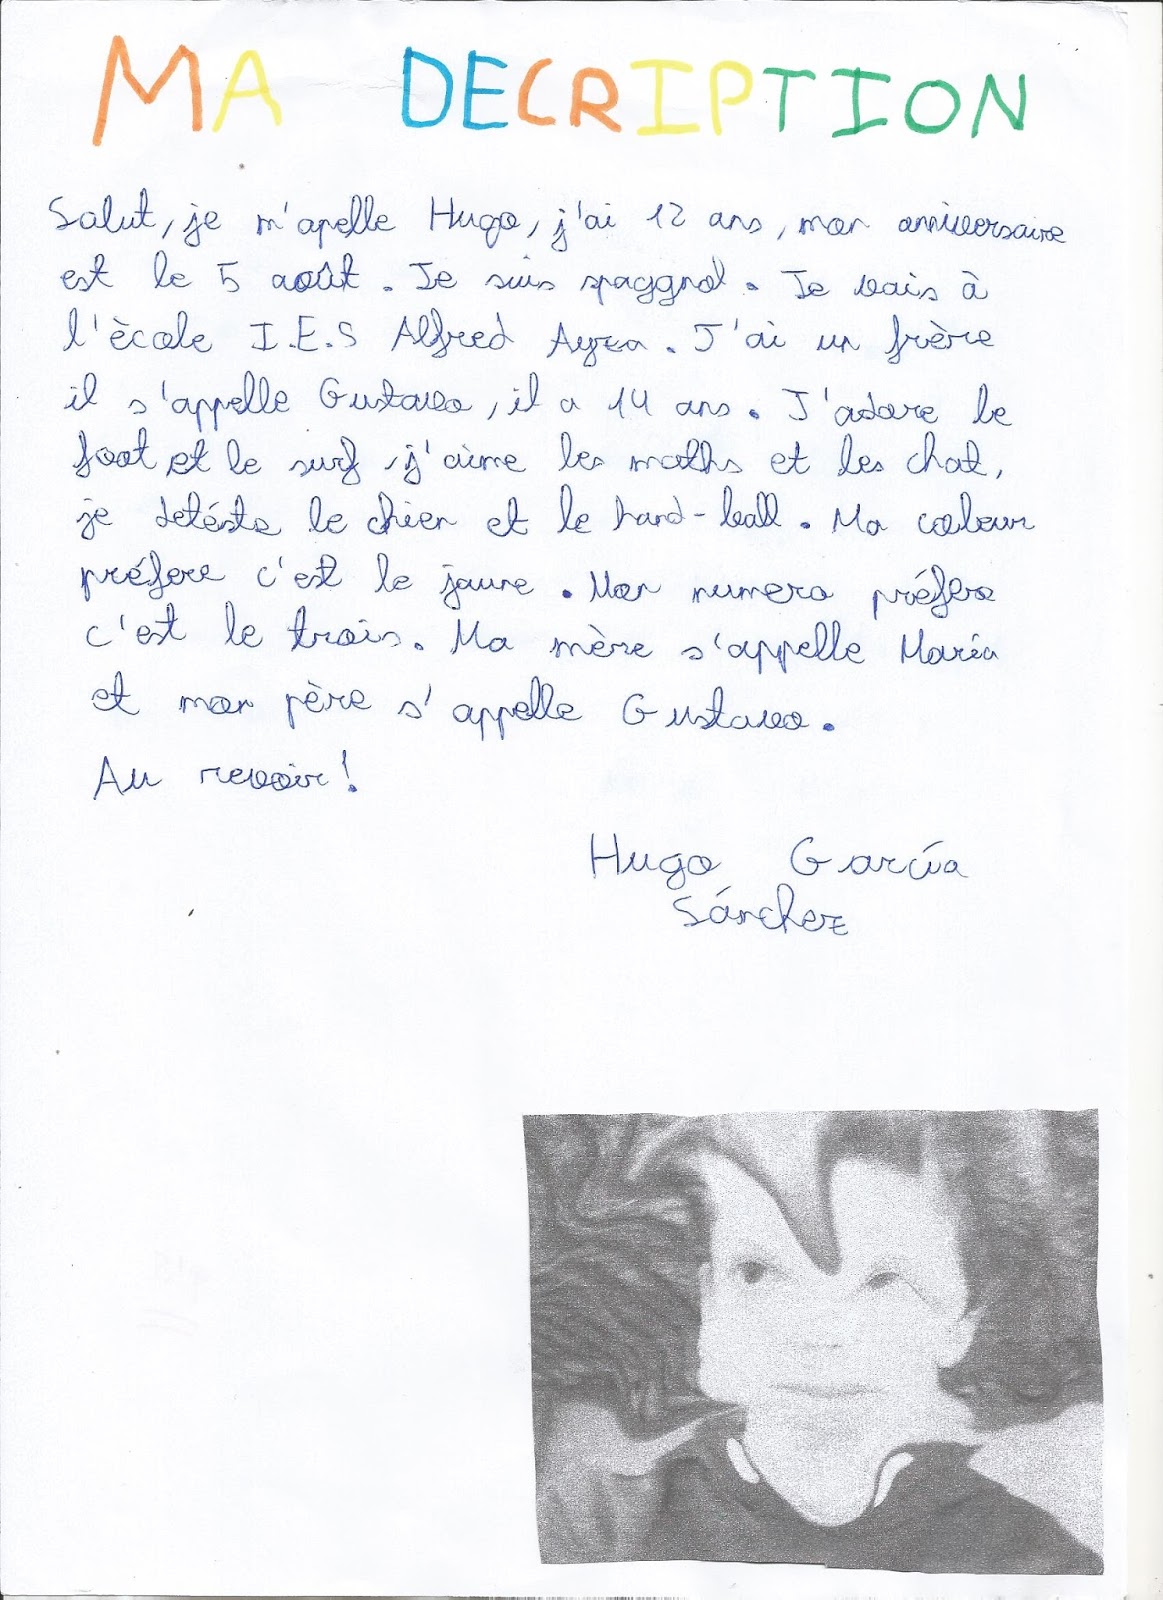 MA DECRIPTION
Salut, je m'apelle Hugo, j'ai 12 ans, mon anniversaire
est le 5 août. Je suis spaggnol. Je vais à
l'ècole I.E.S Alfred Ayza. J'ai un frère
il s'appelle Gustavo, il a 14 ans. J'adore le
foot et le surf, j'aime les maths et les chat,
je detésts le chien et le hand-ball. Ma coleur
préfere c'est le jaune. Mon numero préfere
c'est le trois. Ma mère s'appelle María
et mon père s'appelle Gustavo.
Au revoir!
Hugo García
Sánchez